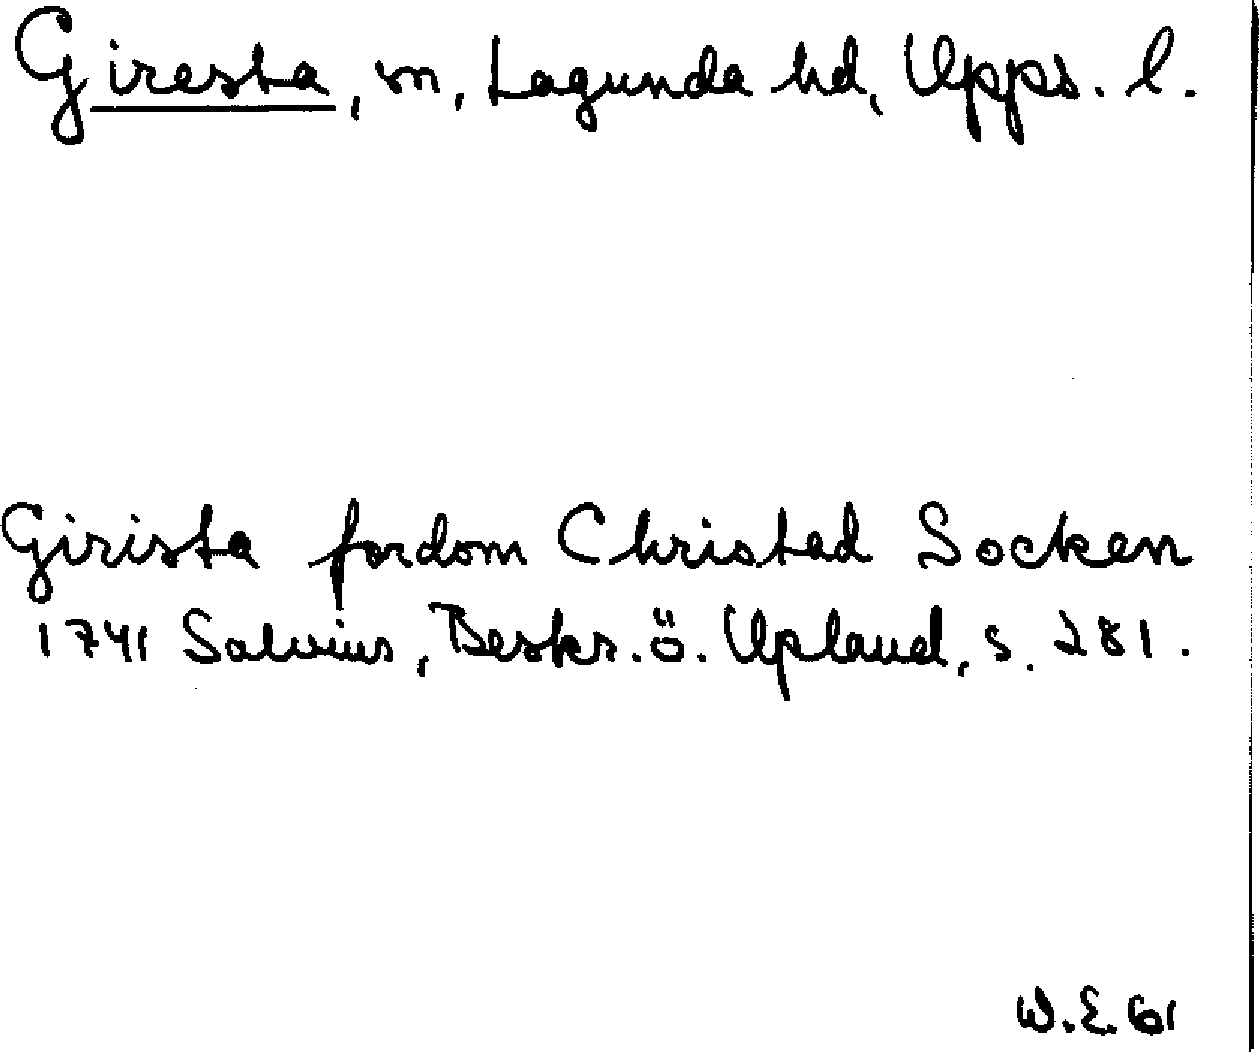 Giresta, sn, Lagunda hd, Upps. l.
Girista fordom Christad Socken
1741 Salvius, Beskr. ö. Upland, s. 281.
W.E. 61